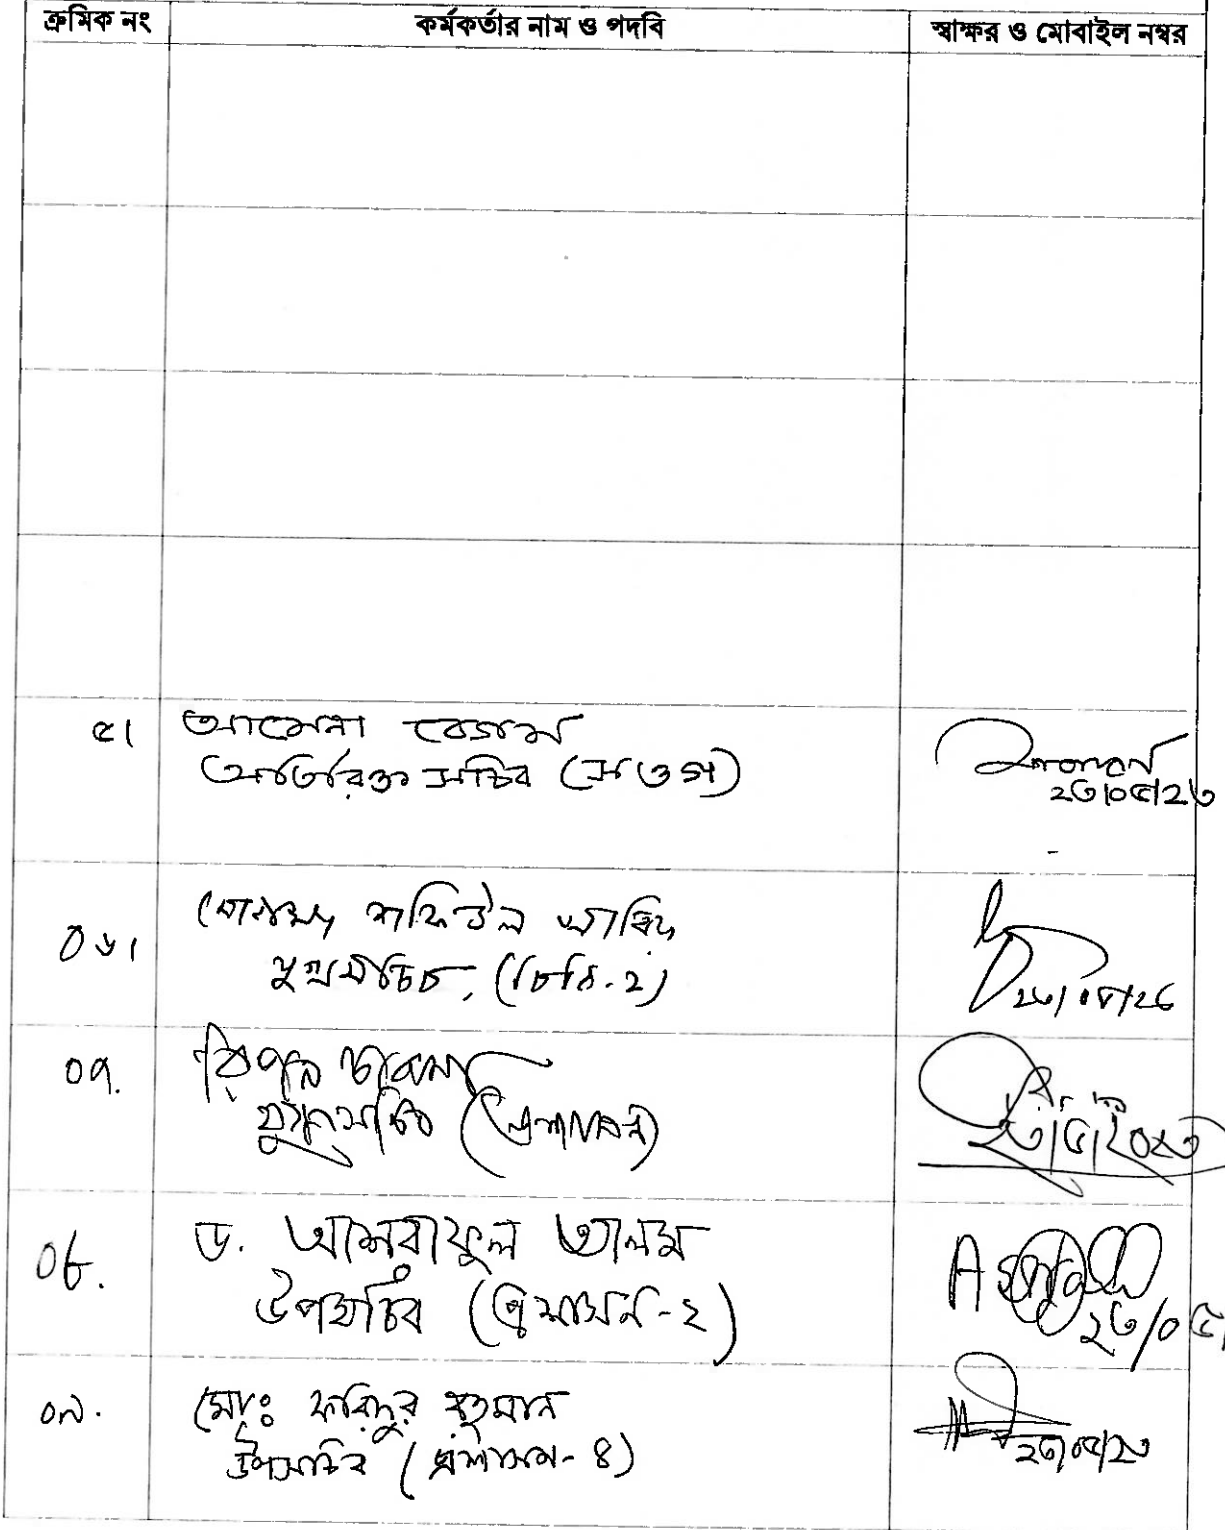 ক্রমিক নং কর্মকর্তার নাম ও পদবি স্বাক্ষর ও মোবাইল নম্বর
৫। আমেনা বেগম
অতিরিক্ত সচিব (স ও গ)
২৩/০৫/২৩
০৬। শফিউল আরিফ
যুগ্মসচিব, (চিনি-২)
০৭. রিপন চাকমা
যুগ্মসচিব (প্রশাসন)
২৩/৫/২০২৩
০৮. ড. আশরাফুল আলম
উপসচিব (প্রশাসন-২)
২৩/০৫/
০৯. মোঃ ফরিদুর রহমান
উপসচিব (প্রশাসন-৪)
২৩/০৫/২৩